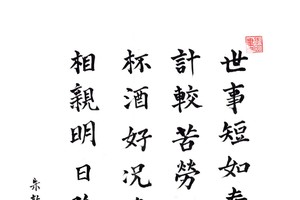 世事短如春
計較苦勞
杯酒好況
相親明日